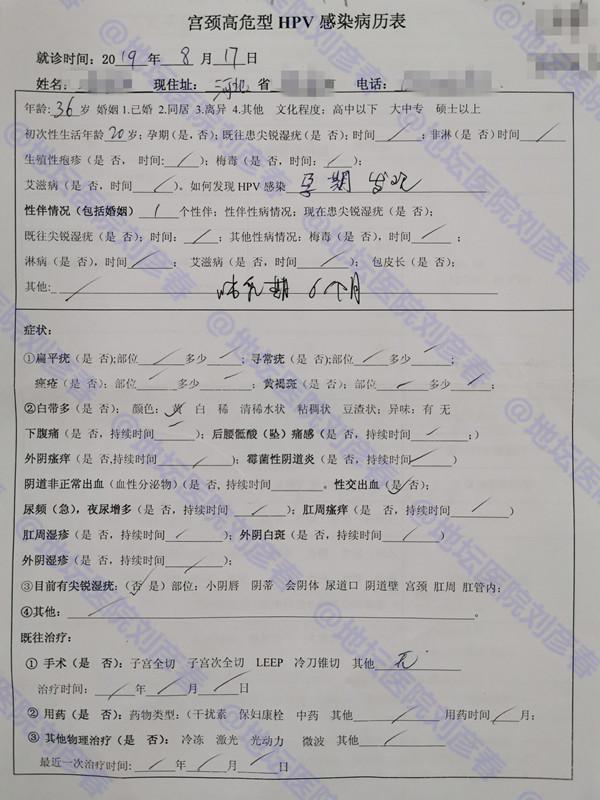 宫颈高危型 HPV 感染病历表
就诊时间：2019 年 8 月 17 日
姓名： 现住址： 河北 省 电话：
年龄：36 岁 婚姻 1.已婚 2.同居 3.离异 4.其他 文化程度：高中以下 大中专 硕士以上
初次性生活年龄 20 岁；孕期（是，否）；既往患尖锐湿疣（是 否）；时间 ；非淋（是 否）时间
生殖性疱疹（是 否， 时间： ）；梅毒（是 否，时间： ）；
艾滋病（是 否，时间 ）。如何发现 HPV 感染 孕期 发现
性伴情况（包括婚姻） 1 个性伴；性伴性病情况：现在患尖锐湿疣（是 否）；
既往尖锐湿疣（是 否）；时间： ；其他性病情况：梅毒（是 否），时间 ；
淋病（是 否），时间 ； 艾滋病（是 否，时间 ）； 包皮长（是 否）；
其他： 哺乳期 6个月
症状：
①扁平疣（是 否）;部位 多少 ；寻常疣（是 否）;部位 多少 ；
痤疮（是 否）；部位 多少 ； 黄褐斑（是 否）；部位 多少 ；
②白带多（是 否）； 颜色： 黄 白 稀 清稀水状 粘稠状 豆渣状；异味：有 无
下腹痛（是 否，持续时间 ）；后腰骶酸（坠）痛感（是 否，持续时间 ；）
外阴瘙痒（是 否,持续时间 ）；霉菌性阴道炎（是 否，持续时间 ）
阴道非正常出血（血性分泌物）（是 否, 持续时间 。性交出血（是 否）；
尿频（急），夜尿增多（是 否，持续时间 ）；肛周瘙痒（是 否，持续时间 ）
肛周湿疹（是 否，持续时间 ）；外阴白斑（是 否，持续时间 ）
外阴湿疹（是 否，持续时间 ）；
③目前有尖锐湿疣：（否 是）部位：小阴唇 阴蒂 会阴体 尿道口 阴道壁 宫颈 肛周 肛管内；
④其他： 。
既往治疗：
① 手术（是 否）：子宫全切 子宫次全切 LEEP 冷刀锥切 其他 无
治疗时间： 年 月 日
② 用药（是 否）：药物类型：（干扰素 保妇康栓 中药 其他 用药时间 月；
③ 其他物理治疗（是 否）： 冷冻 激光 光动力 微波 其他
最近一次治疗时间： 年 月 日
@地坛医院刘彦春